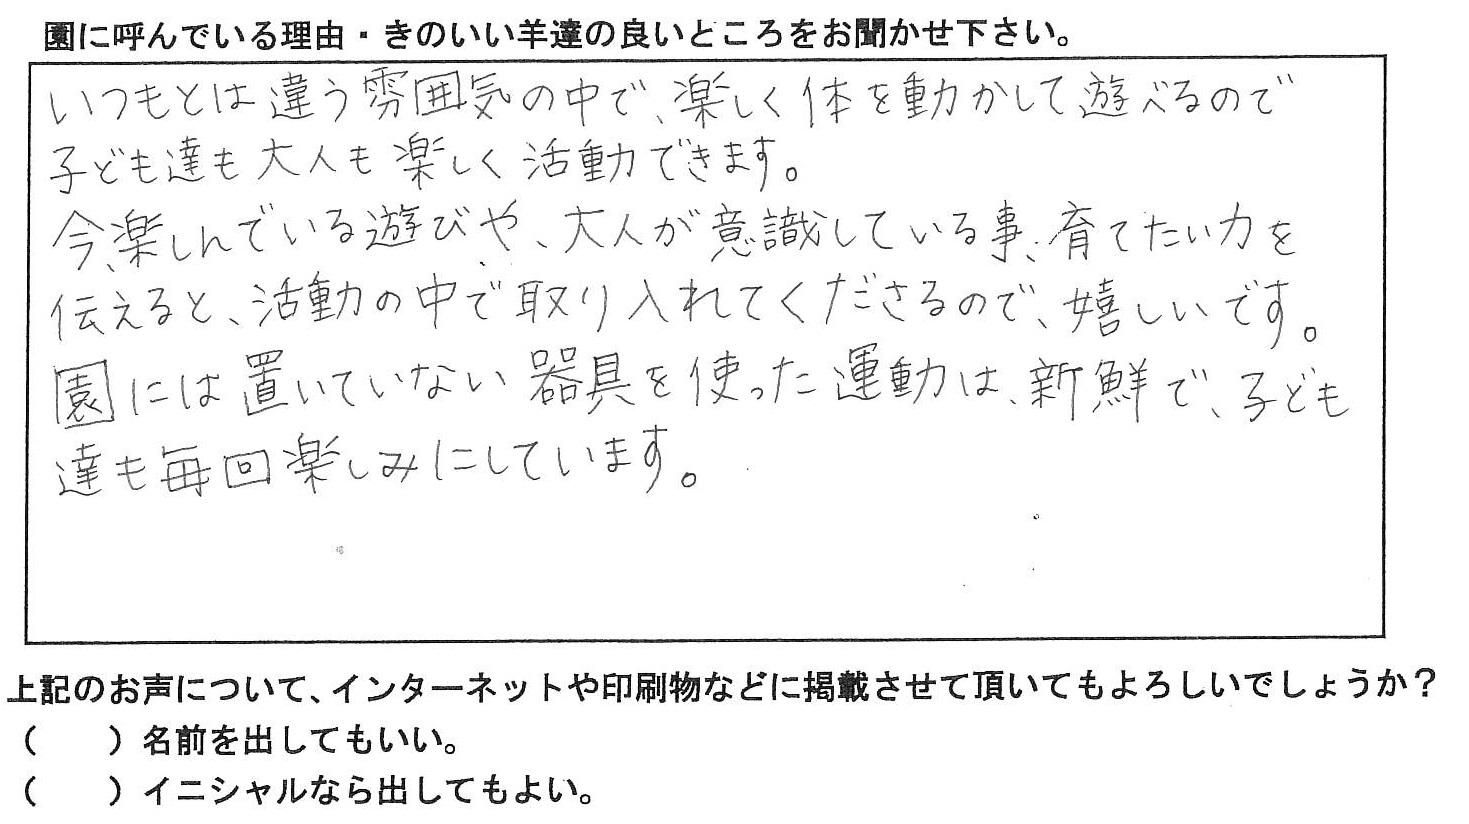 園に呼んでいる理由・きのいい羊達の良いところをお聞かせ下さい。
いつもとは違う雰囲気の中で、楽しく体を動かして遊べるので
子ども達も大人も楽しく活動できます。
今、楽しんでいる遊びや、大人が意識している事、育てたい力を
伝えると、活動の中で取り入れてくださるので、嬉しいです。
園には置いていない器具を使った運動は、新鮮で、子ども
達も毎回楽しみにしています。
上記のお声について、インターネットや印刷物などに掲載させて頂いてもよろしいでしょうか？
（　　）名前を出してもいい。
（　　）イニシャルなら出してもよい。